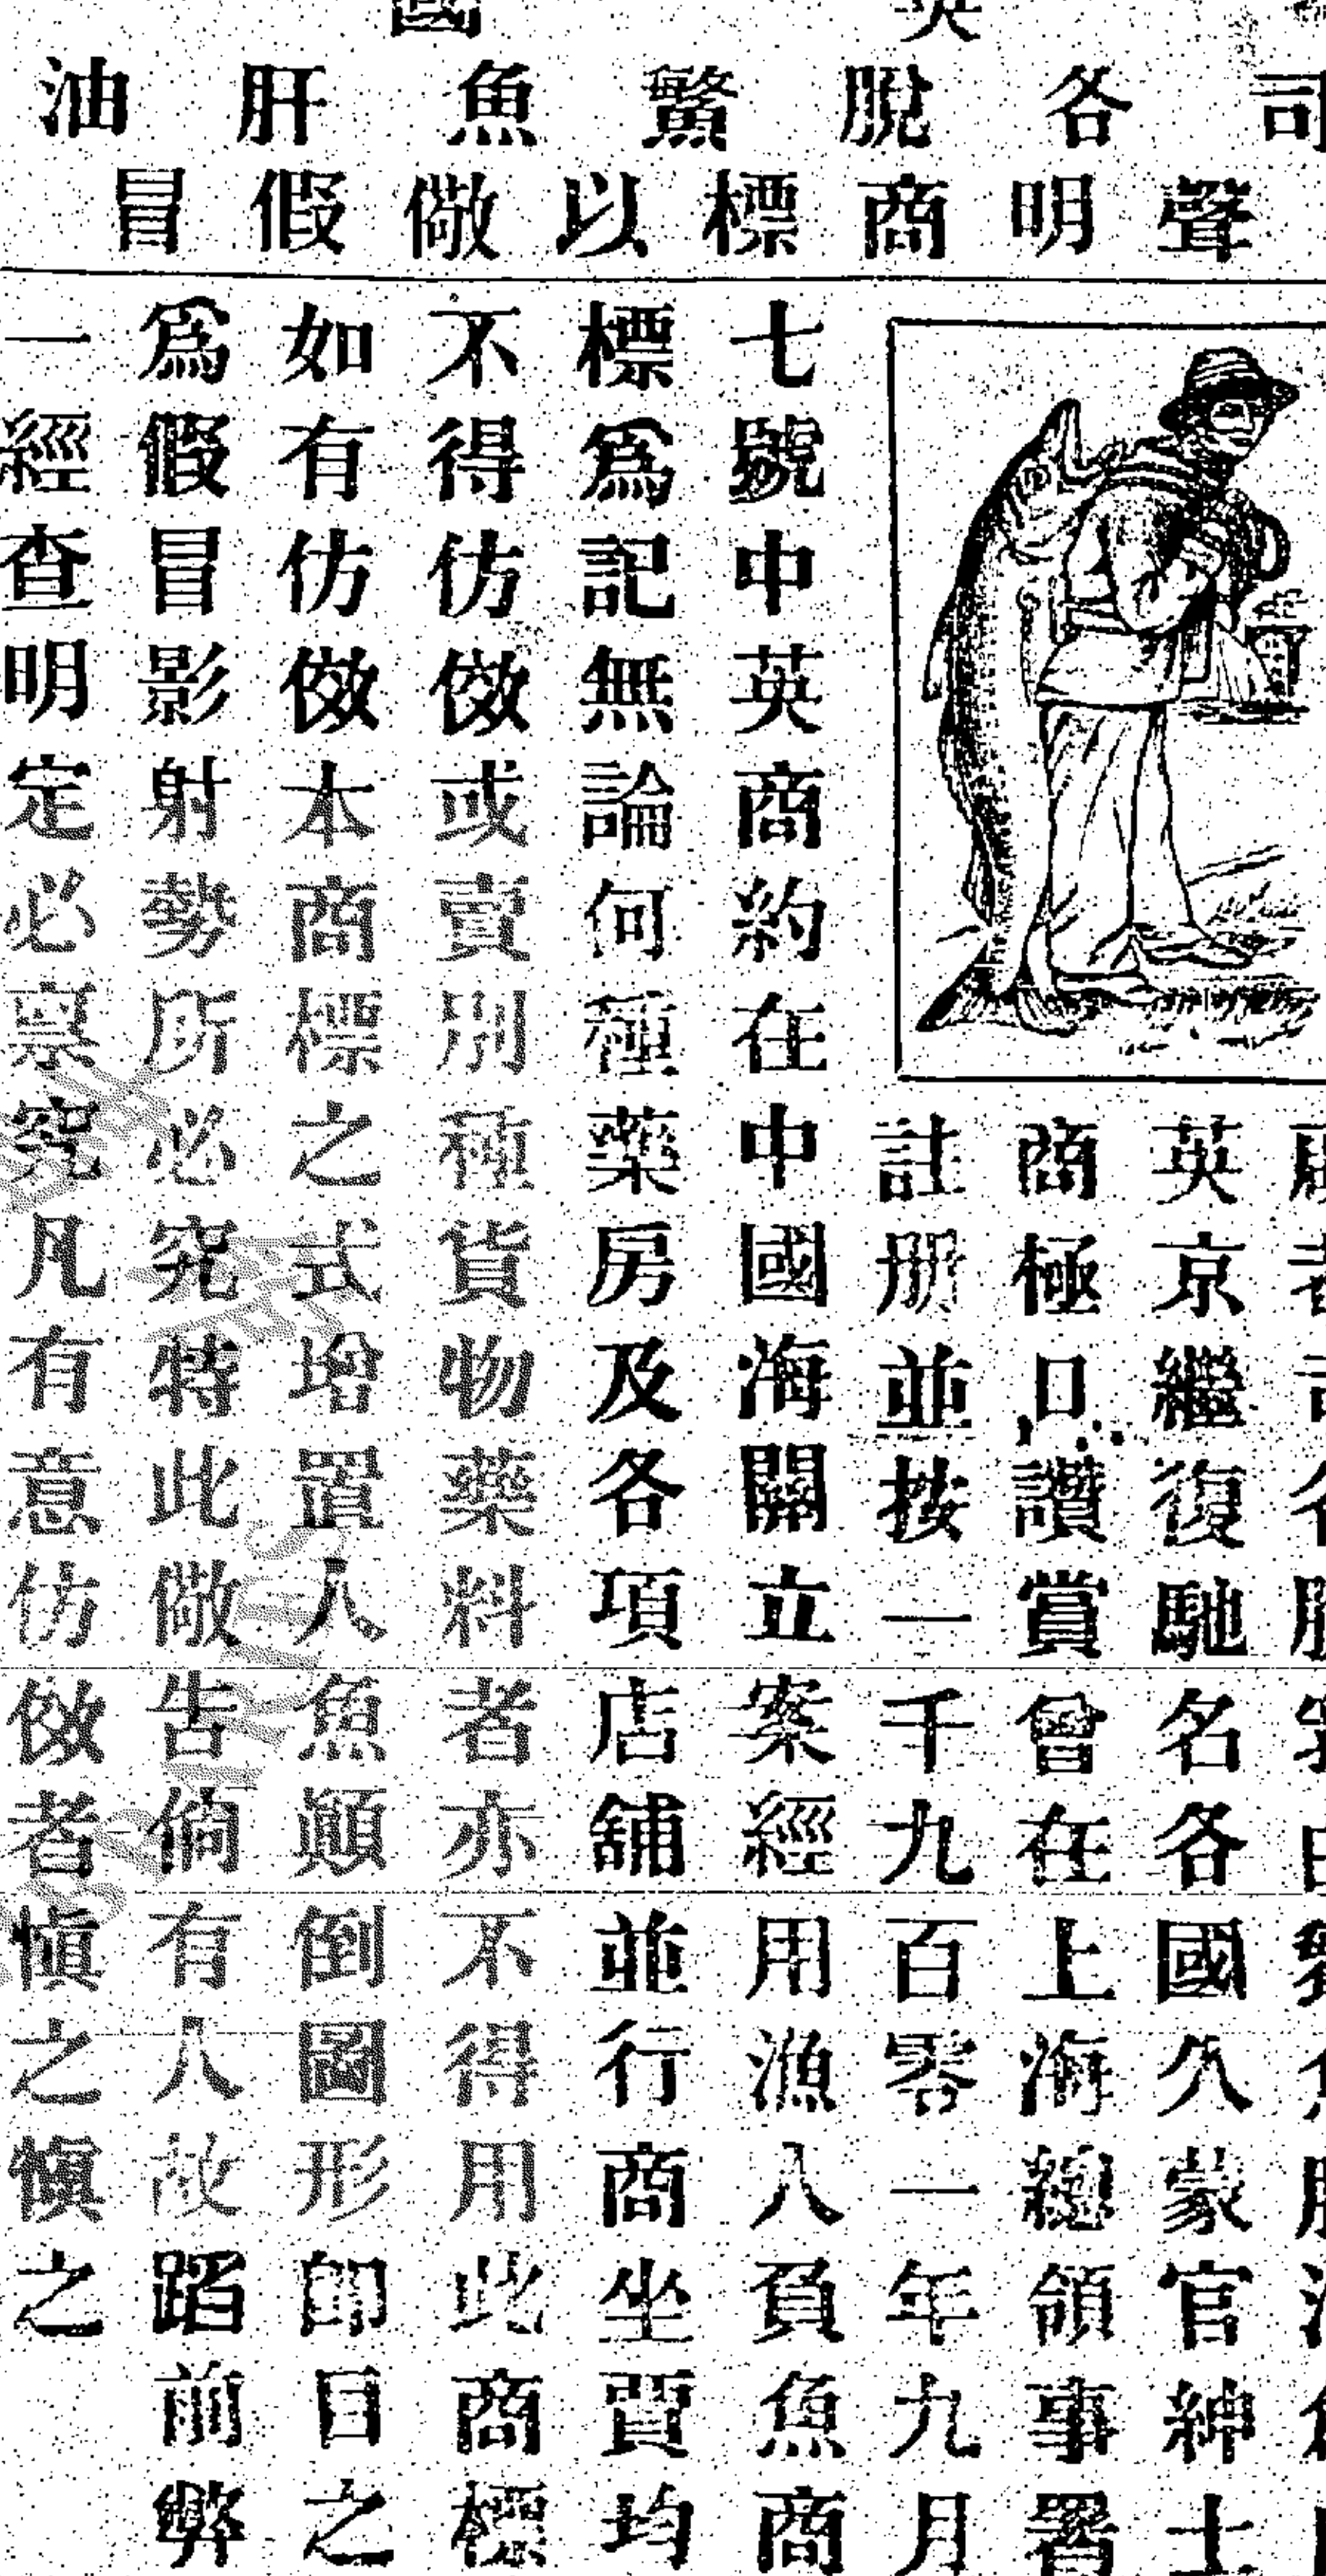 英國
司各脫鱉魚肝油
聲明商標以儆假冒
英京繼復馳名各國久蒙官紳士
商極口讚賞曾在上海總領事署
註册並按一千九百零一年九月
七號中英商約在中國海關立案經用漁人負魚商
標爲記無論何種藥房及各項店舖並行商坐賈均
不得仿傚或賣別種貨物藥料者亦不得用此商標
如有仿傚本商標之式增置人魚顚倒圖形卽目之
爲假冒影射勢所必究特此儆告倘有人故蹈前弊
一經查明定必禀究凡有意仿傚者愼之愼之